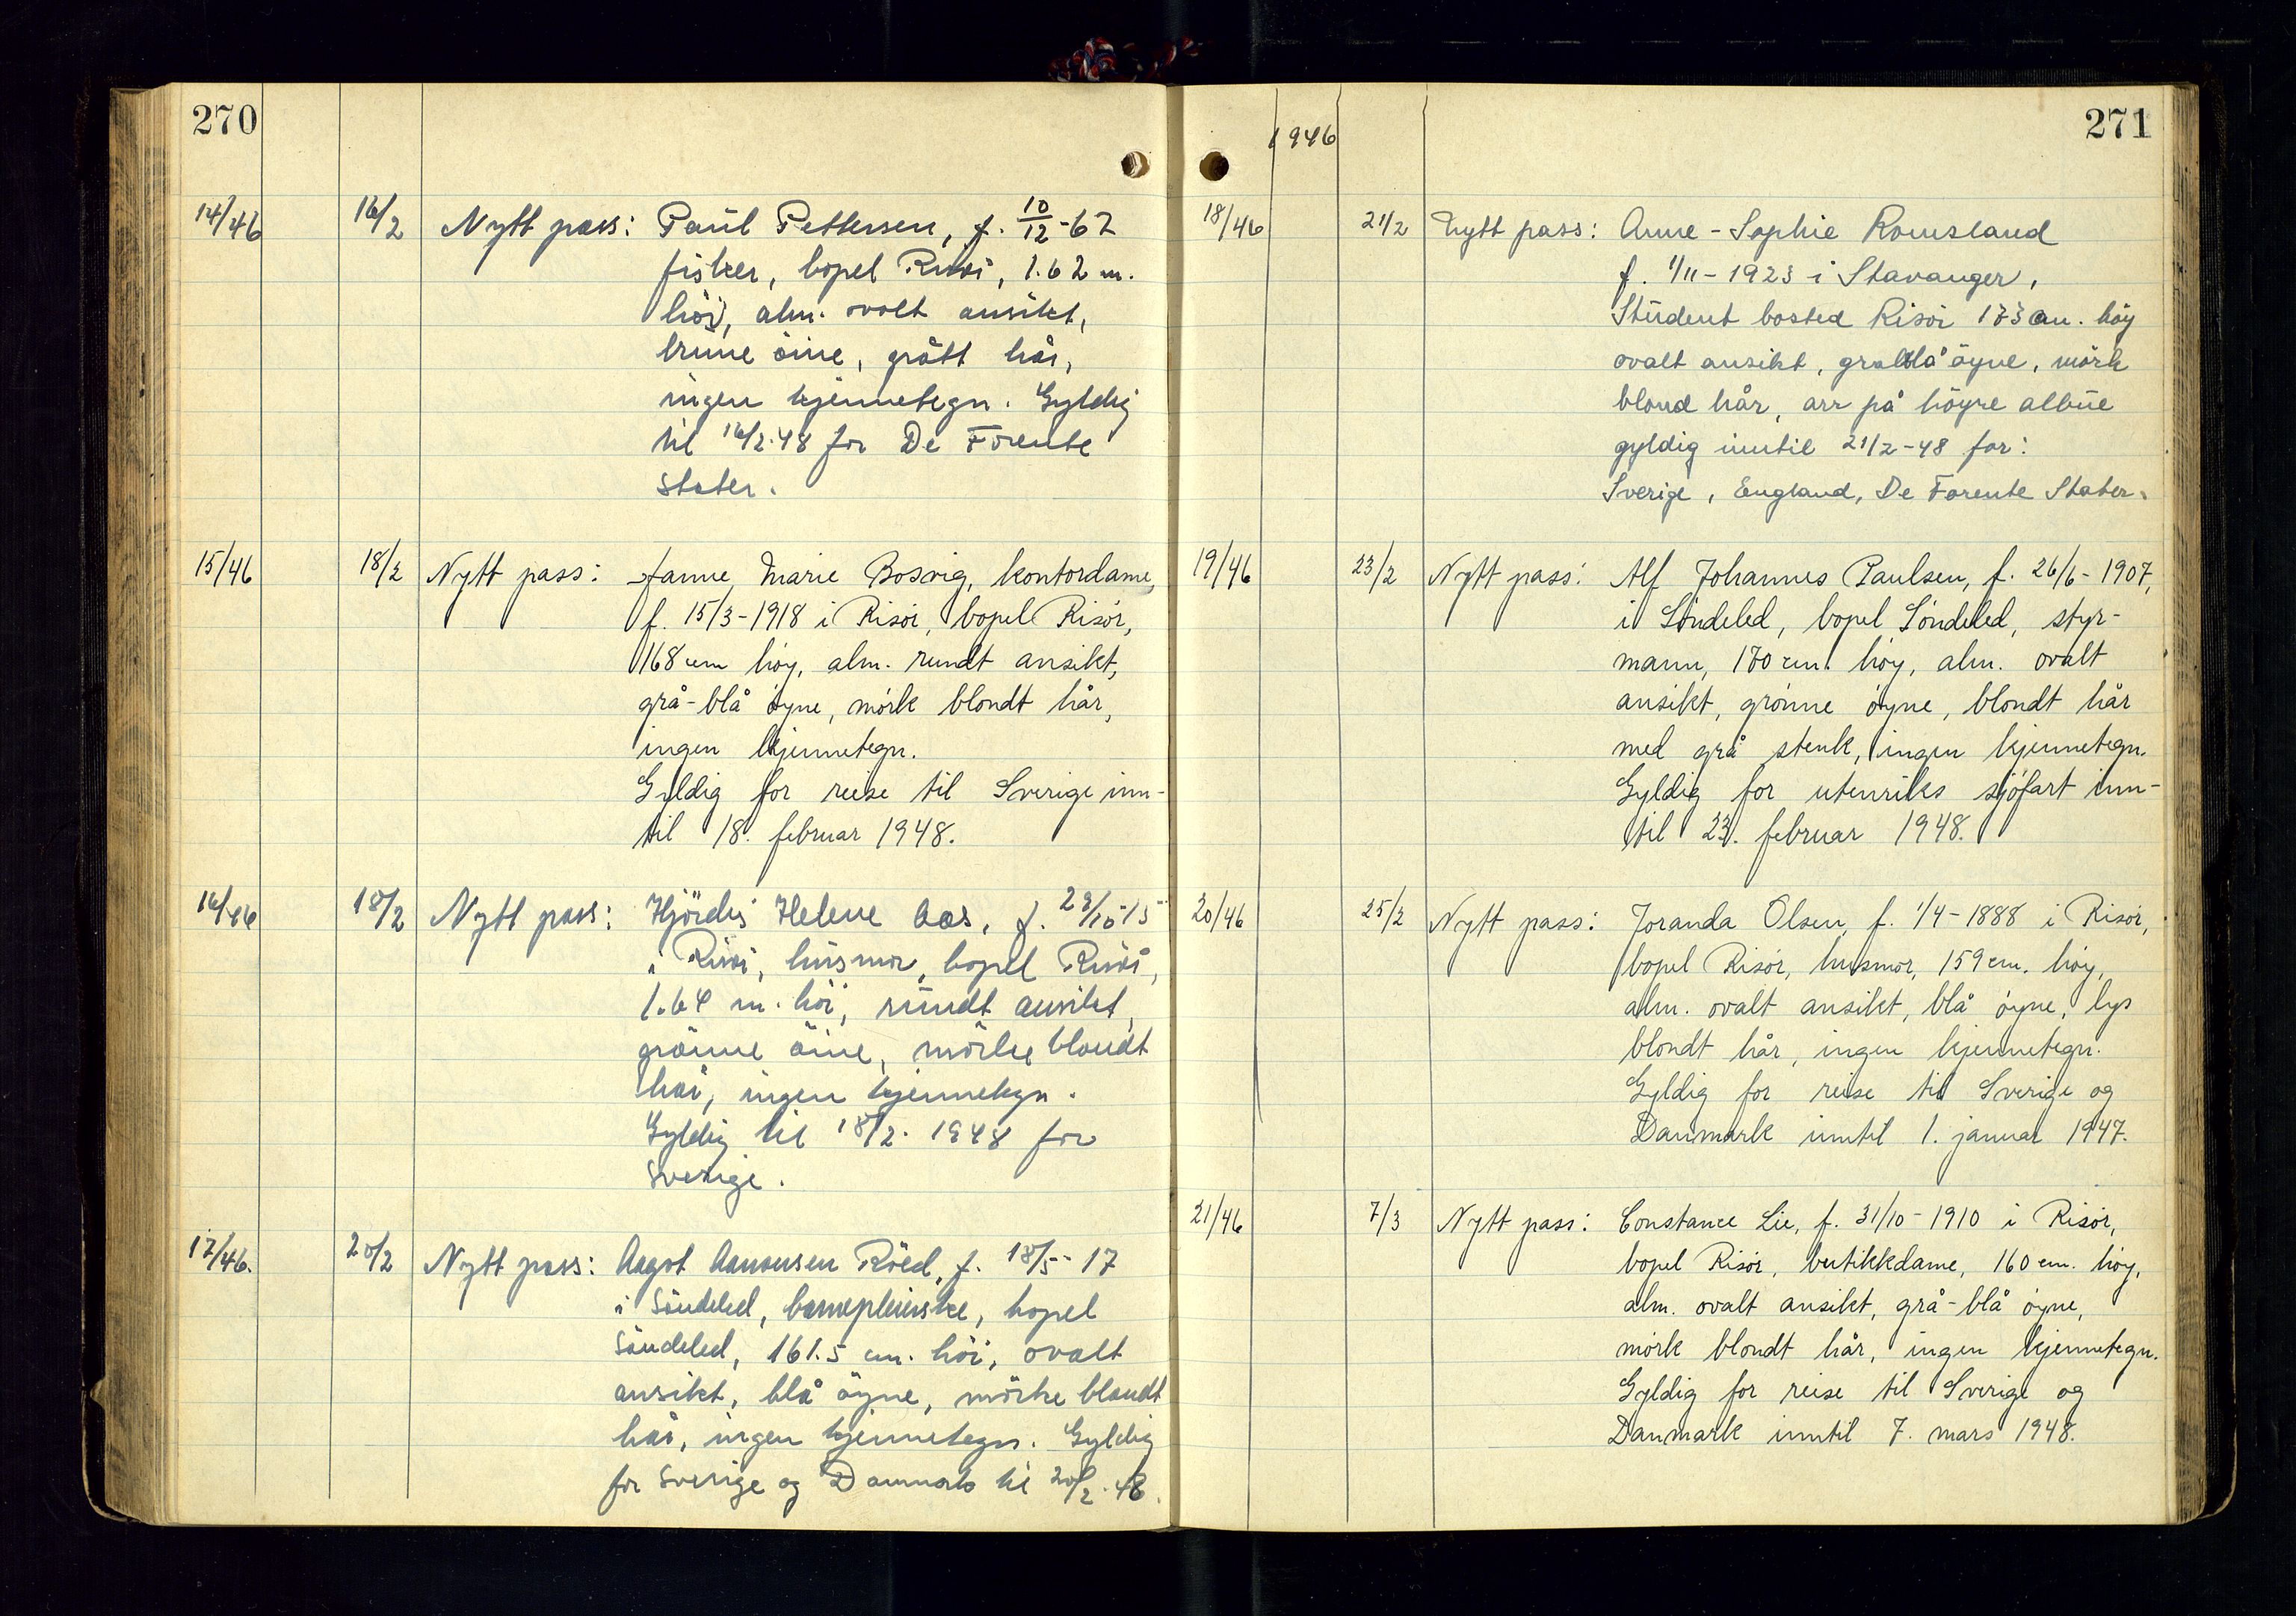 270
14/46 16/2 Nytt pass: Paul Pettersen, f. 10/12-67
fisker, bopel Risör, 1.62 m.
höi, alm. ovalt ansikt,
brune öine, grått hår,
ingen kjennetegn. Gyldig
til 16/2.48 for De Forente
Stater.
15/46 18/2 Nytt pass: Janne Marie Bosvig, kontordame,
f. 15/3-1918 i Risör, bopel Risör,
168 cm höy, alm. rundt ansikt,
grå-blå öyne, mörk blondt hår,
ingen kjennetegn.
Gyldig for reise til Sverige inn-
til 18. februar 1948.
16/46 18/2 Nytt pass: Hjördis Helene Aas, f. 28/10-15
i Risör, husmor, bopel Risör,
1.64 m. höi, rundt ansikt,
grönne öine, mörke blondt
hår, ingen kjennetegn.
Gyldig til 18/2. 1948 for
Sverige.
17/46. 20/2 Nytt pass: Aagot Aanonsen Röed, f. 18/5-17
i Söndeled, barnepleierske, bopel
Söndeled, 161.5 cm. höi, ovalt
ansikt, blå öyne, mörke blondt
hår, ingen kjennetegn. Gyldig
for Sverige og Danmark til 20/2.48.
1946
271
18/46 21/2 Nytt pass: Anne-Sophie Romsland
f. 1/11-1923 i Stavanger,
Student bosted Risör 173 cm. höy
ovalt ansikt, gråblå öyne, mörk
blond hår, arr på höyre albue
gyldig inntil 21/2-48 for:
Sverige, England, De Forente Stater.
19/46 23/2 Nytt pass: Alf Johannes Paulsen, f. 26/6-1907,
i Söndeled, bopel Söndeled, styr-
mann, 170 cm. höy, alm. ovalt
ansikt, grönne öyne, blondt hår
med grå stenk, ingen kjennetegn.
Gyldig for utenriks sjöfart inn-
til 23. februar 1948.
20/46 25/2 Nytt pass: Joranda Olsen, f. 1/4-1888 i Risör,
bopel Risör, husmor, 159 cm. höy,
alm. ovalt ansikt, blå öyne, lys
blondt hår, ingen kjennetegn.
Gyldig for reise til Sverige og
Danmark inntil 1. januar 1947.
21/46 7/3 Nytt pass: Constance Lie, f. 31/10-1910 i Risör,
bopel Risör, butikkdame, 160 cm. höy,
alm. ovalt ansikt, grå-blå öyne,
mörk blondt hår, ingen kjennetegn.
Gyldig for reise til Sverige og
Danmark inntil 7. mars 1948.